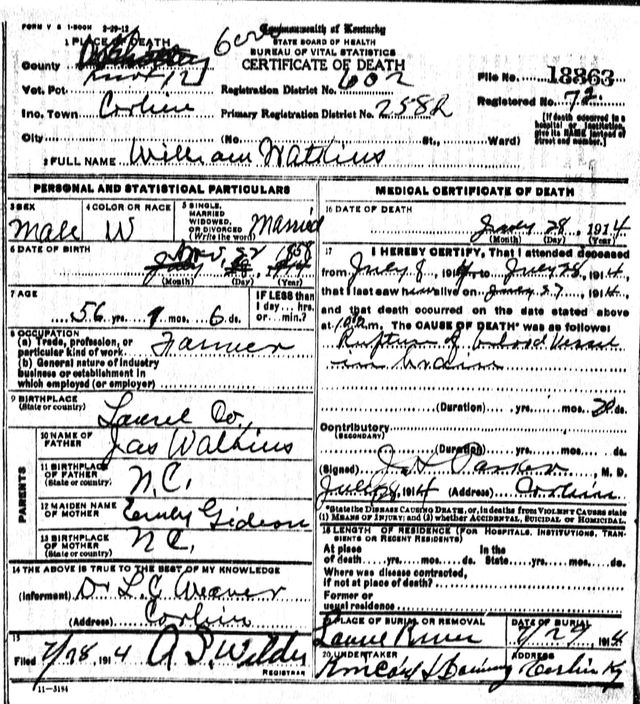 FORM V S 1-500M 3-29-12
Commonwealth of Kentucky
STATE BOARD OF HEALTH
BUREAU OF VITAL STATISTICS
CERTIFICATE OF DEATH
1 PLACE OF DEATH
County
Vot. Pct. Registration District No. 602 File No. 18863
Ino. Town Corbin Primary Registration District No. 2582 Registered No. 72
City (No. St., Ward) [If death occurred in a hospital or institution, give its NAME instead of street and number.]
2 FULL NAME William Watkins
PERSONAL AND STATISTICAL PARTICULARS
3 SEX Male
4 COLOR OR RACE W
5 SINGLE, MARRIED WIDOWED, OR DIVORCED (Write the word) Married
6 DATE OF BIRTH 22 1858
(Month) (Day) (Year)
7 AGE 56 yrs. mos. 6 ds. IF LESS than 1 day... hrs. or... min.?
8 OCCUPATION
(a) Trade, profession, or particular kind of work Farmer
(b) General nature of industry business or establishment in which employed (or employer)
9 BIRTHPLACE (State or country) Laurel Co,
PARENTS
10 NAME OF FATHER Jas Watkins
11 BIRTHPLACE OF FATHER (State or country) N.C.
12 MAIDEN NAME OF MOTHER Emily Gideon
13 BIRTHPLACE OF MOTHER N.C.
14 THE ABOVE IS TRUE TO THE BEST OF MY KNOWLEDGE
(Informant) Dr L.C. Weaver
(Address) Corbin
15
Filed 7/28, 1914 A.S. Wilder
REGISTRAR
11-3184
MEDICAL CERTIFICATE OF DEATH
16 DATE OF DEATH July 28, 1914
(Month) (Day) (Year)
17 I HEREBY CERTIFY, That I attended deceased
from July 8 1914 to July 28, 1914,
that I last saw him alive on July 27, 1914,
and that death occurred on the date stated above
at 10 a.m. The CAUSE OF DEATH* was as follows:
Rupture of blood vessel
in brain
(Duration) yrs. mos. 20 ds.
Contributory
(SECONDARY)
(Duration) yrs. mos. ds.
(Signed) Parker, M. D.
July 28, 1914 (Address) Corbin
*State the DISEASE CAUSING DEATH, or, in deaths from VIOLENT CAUSES state (1) MEANS OF INJURY; and (2) whether ACCIDENTAL, SUICIDAL or HOMICIDAL.
18 LENGTH OF RESIDENCE (FOR HOSPITALS, INSTITUTIONS, TRANSIENTS OR RECENT RESIDENTS)
At place of death yrs. mos. ds. In the State yrs. mos. ds.
Where was disease contracted, if not at place of death?
Former or usual residence
19 PLACE OF BURIAL OR REMOVAL Laurel River
DATE OF BURIAL 7/29 1914
20 UNDERTAKER
ADDRESS Corbin Ky